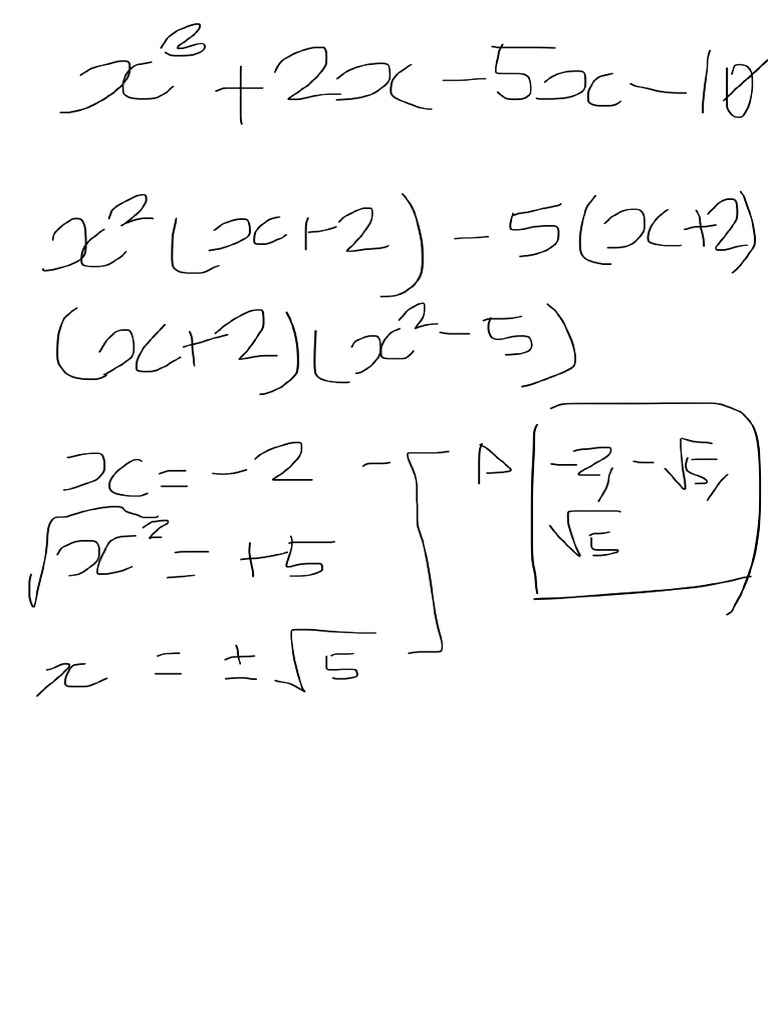 x³ + 2x - 5x - 10
x² (x+2) - 5 (x+2)
(x+2)(x² - 5)
x = -2 -
√x² = +5
x = ± √5
-2, -√5,
√5